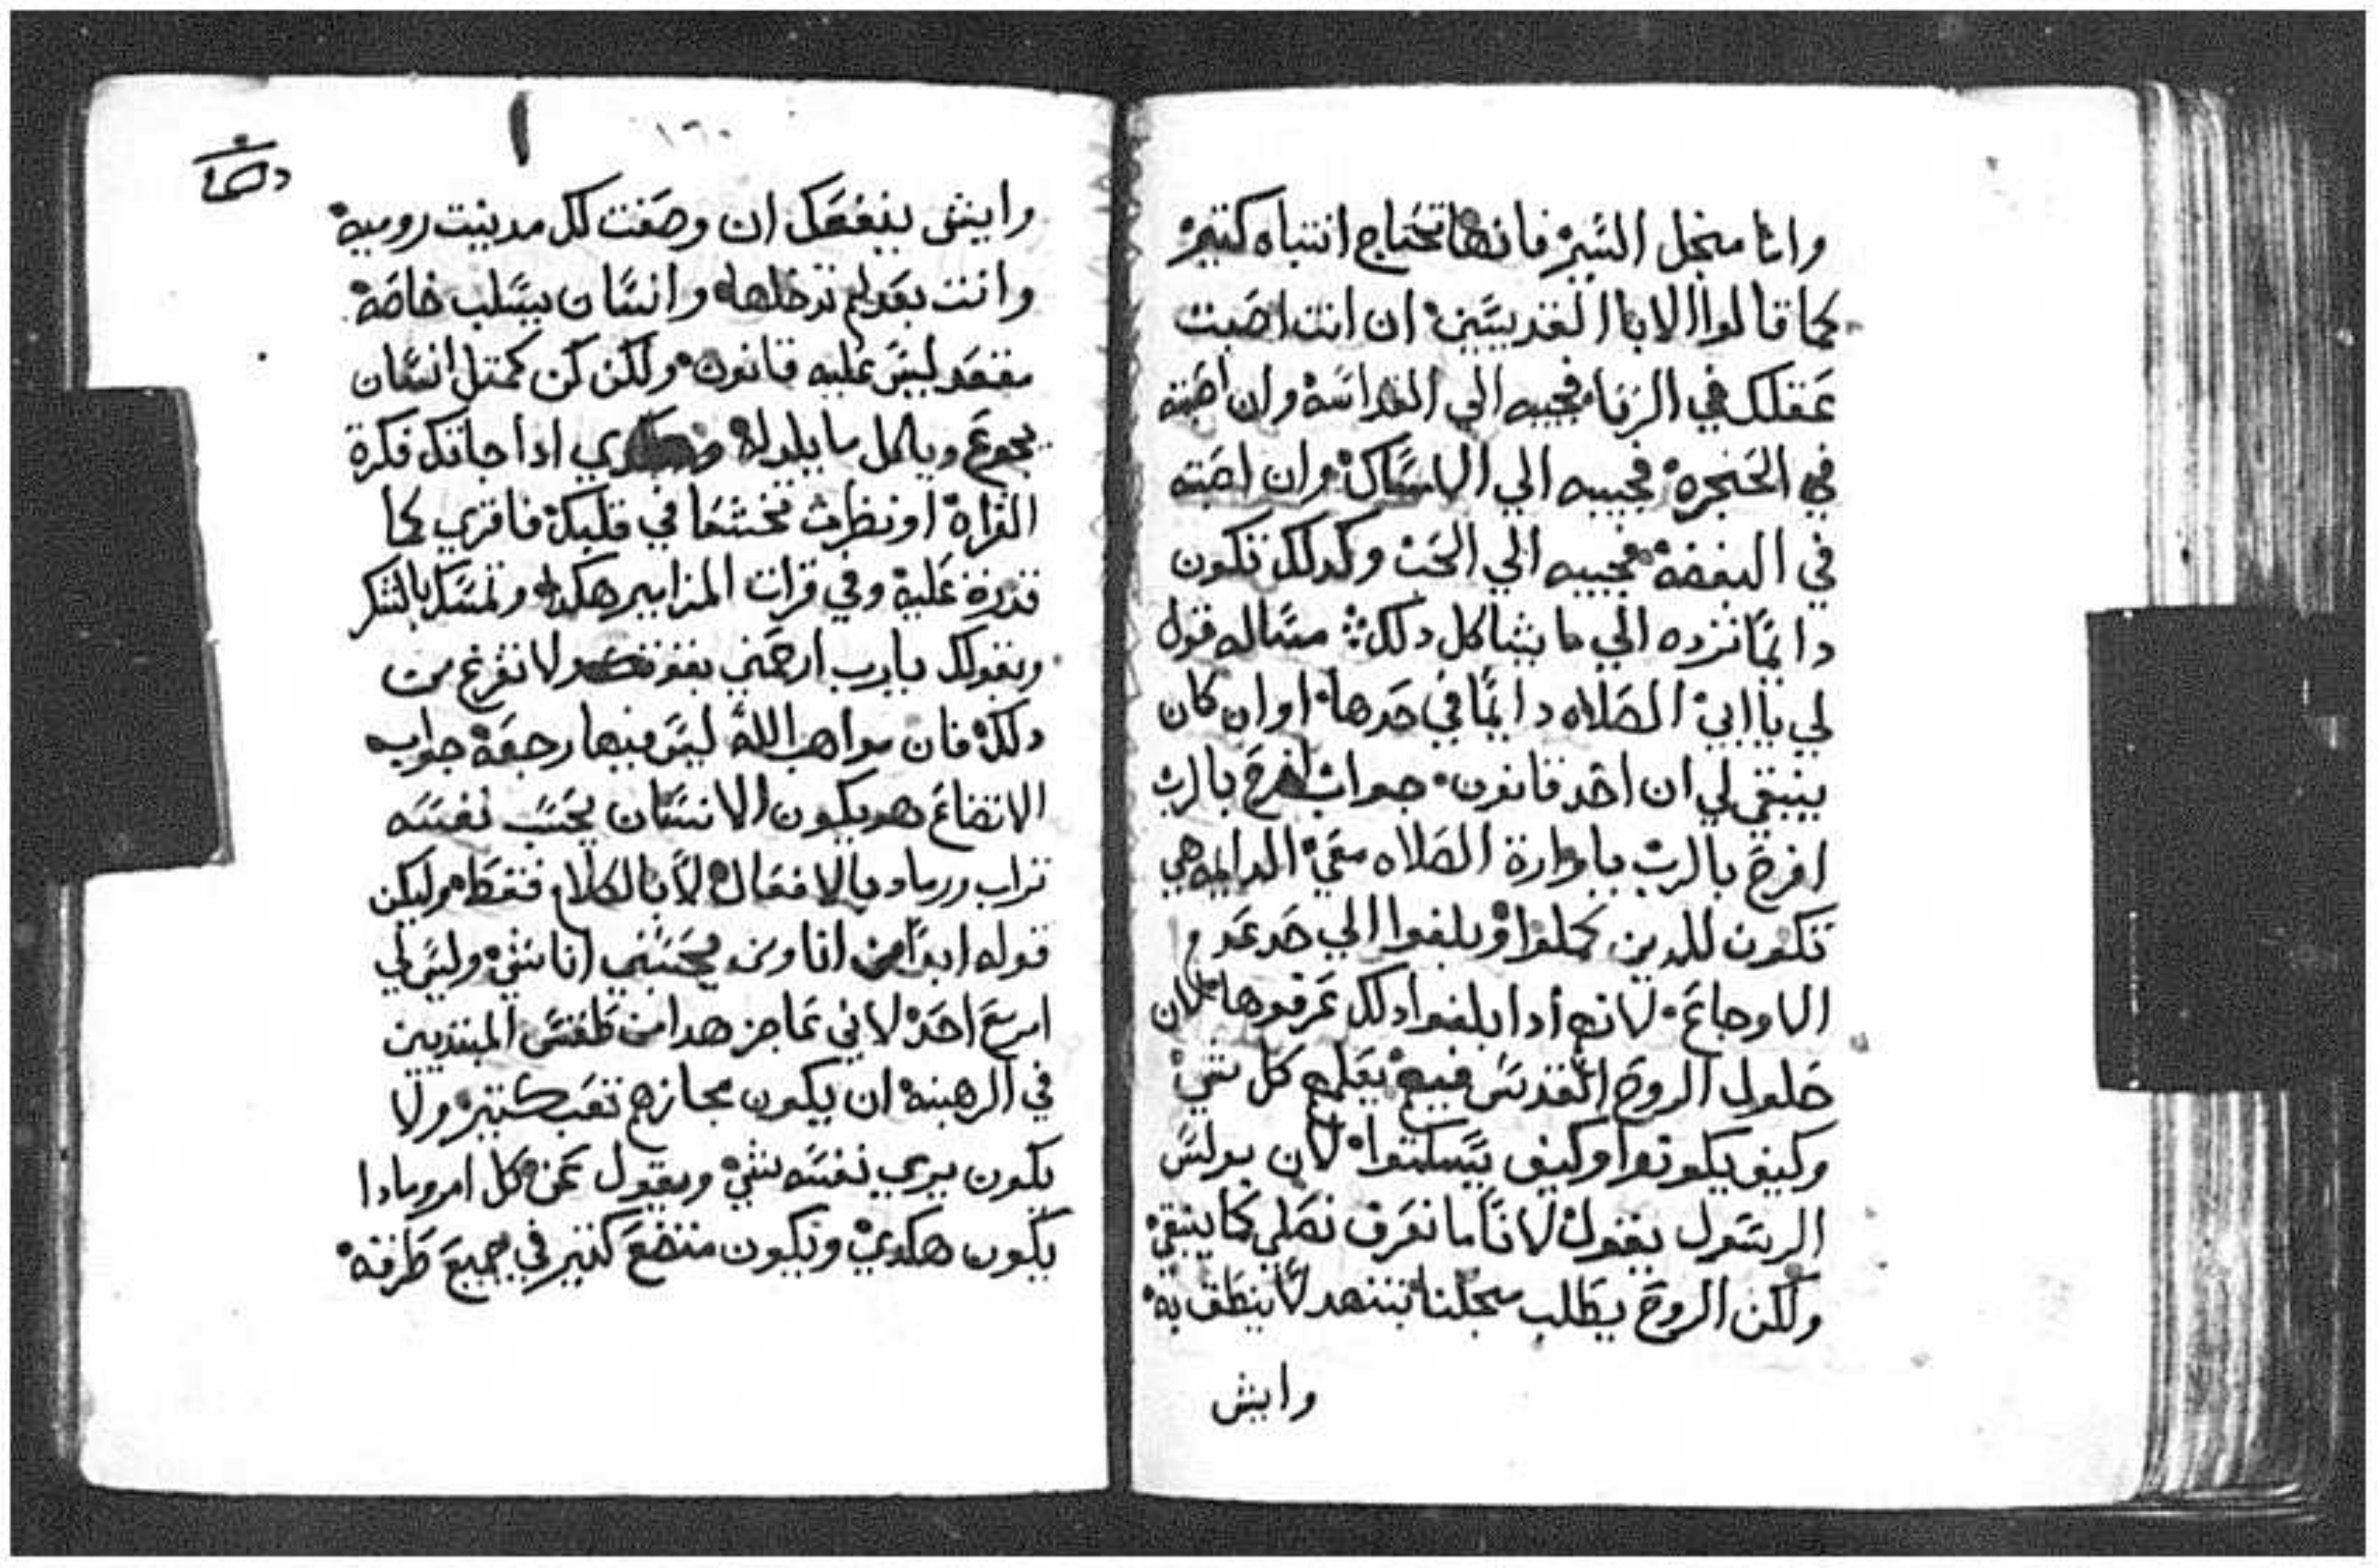 وانا منجل السير فانها تحتاج انتباه كتير
كما قالوا الابا القديسين ان انت اصبت
عقلك في الزنا فجيبه الي القداسه وان اصبته
في الحنجره فجيبه الي الامساك وان اصبته
في البغضه فجيبه الي الحب وكدلك تكون
دايمًا ترده الي ما يشاكل دلك مساله قول
لي يا ابي الصلاه دايمًا في حدها او ان كان
ينبغي لي ان اخد قانون جواب افرح بالرب
افرح بالرب ياوارة الصلاه معي الدايمه هي
تكون للدين كملوا وبلغوا الي حد عدم
الاوجاع لانهم ادا بلغوا دلك عرفوها لان
حلول الروح القدس فيهم يعلمهم كل شي
وكيف يكونوا وكيف يسكتوا لان بولس
الرسول يقول لانا ما نعرف نصلي كما ينبغي
ولكن الروح يطلب منجلنا بتنهد لا ينطق به
وايش
١٦٠
وايش ينفعك ان وصفت لك مدينت روميه
وانت بعد لم تدخلها وانسان يسلب خاصه
مقعد ليس عليه قانون ولكن كن كمتل انسان
يجوع وياكل ما يلد له ادا جاتك فكرة
القراه او نظرت تخشعا في قلبك فاقري كما
قدرة عليه وفي قرات المزامير هكدا وتمسك بالشكر
وبقولك يارب ارحمني بقو ولا تفرغ من
دلك فان مواهب الله ليس فيها رجعة جواب
الاتضاع هو يكون الانسان يحسب نفسه
تراب ورماد بالافعال لا بالكلام فقط وليكن
قوله ابدًا من انا ومن يحسبني انا شي وليس لي
امر مع احد لاني عاجز هدا من طقس المبتديين
في الرهبنه ان يكون مجازهم تعب كتير ولا
يكون يري نفسه شي ويقول عن كل امر مادا
يكون هكدي ويكون متضع كتير في جميع طرقه